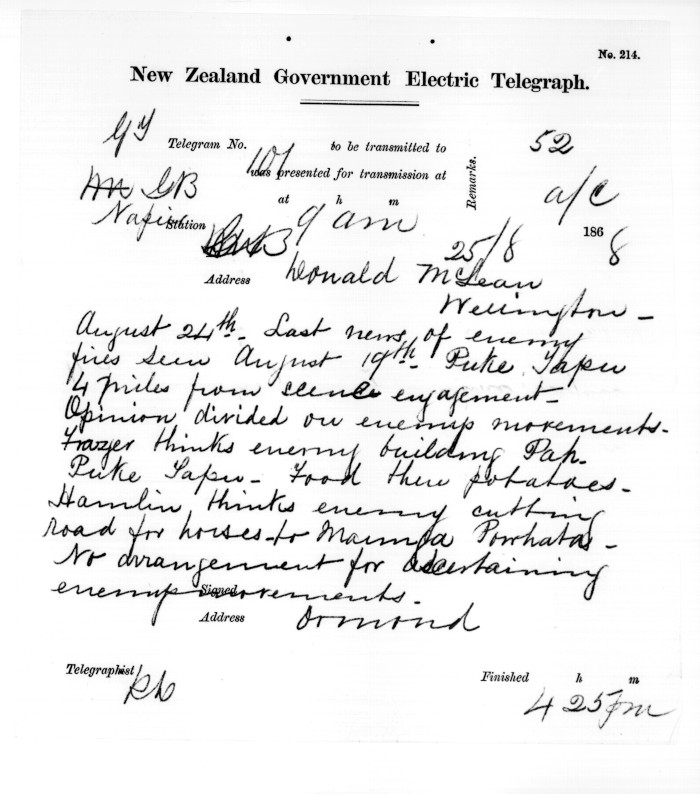 No. 214.
New Zealand Government Electric Telegraph.
Telegram No. 101 to be transmitted to
52
was presented for transmission at
Remarks.
GB
a/c
at h m
Napier Station
9 am
25/8 1868
Address Donald McLean
Wellington -
August 24th - Last news of enemy
fires seen August 19th - Puke Tapu
4 miles from scene engagement -
Opinion divided on enemys movements -
Frazer thinks enemy building Pah
Puke Tapu - Food there potatoes -
Hamlin thinks enemy cutting
road for horses to Maunga Powhatas -
No arrangement for ascertaining
enemys movements -
Signed
Address Ormond
Telegraphist
Finished h m
4 25 pm